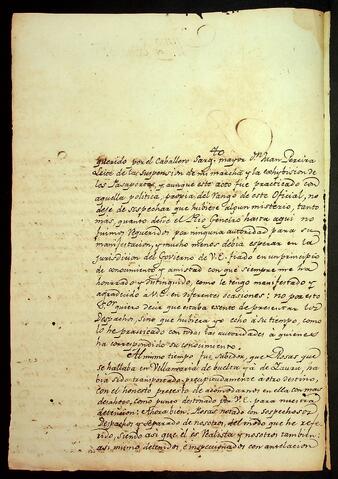 querido por el Caballero Sarg.to mayor D.n Juan Pereira
Leite de la suspension de mi marcha y la exhybision de
los Pasaportes, y aunque este acto fue practicado con
aquella politica, propia del rango de este Oficial, no
dejé de sospechar que hubiese algun misterio, tanto
mas, quanto desde el Rio Geneiro hasta aqui no
fuimos requeridos por ninguna autoridad para su
manifestacion, y mucho menos debia esperar en la
Jurisdicion del Govierno de V.E. fiado en un principio
de conocimiento y amistad con que siempre me ha
honorado y distinguido, como le tengo manifestado y
agradecido a V.E. en diferentes ocasiones; no por esto
quiero decir que estaba exento de presentar los
Despachos, sino que hubiera yo echo a su tiempo, como
lo he practicado con todas las autoridades à quienes
ha correspondido su conocimiento.
Al mismo tiempo fue sabidor, que Rosas que
se hallaba en Villa
bia sido transportado precipitadamente à otro destino,
con el honesto pretexto de acomodarnos en ella con mas
desahogo, como punto destinado por V.E. para nuestra
detencion: Ahora bien, Rosas notado con sospechosos
Despachos y separado de nosotros, del modo que he refe
rido, siendo asi que él es Realista y nosotros tambien;
asi mismo, detenidos, è inspeccionados con antelacion